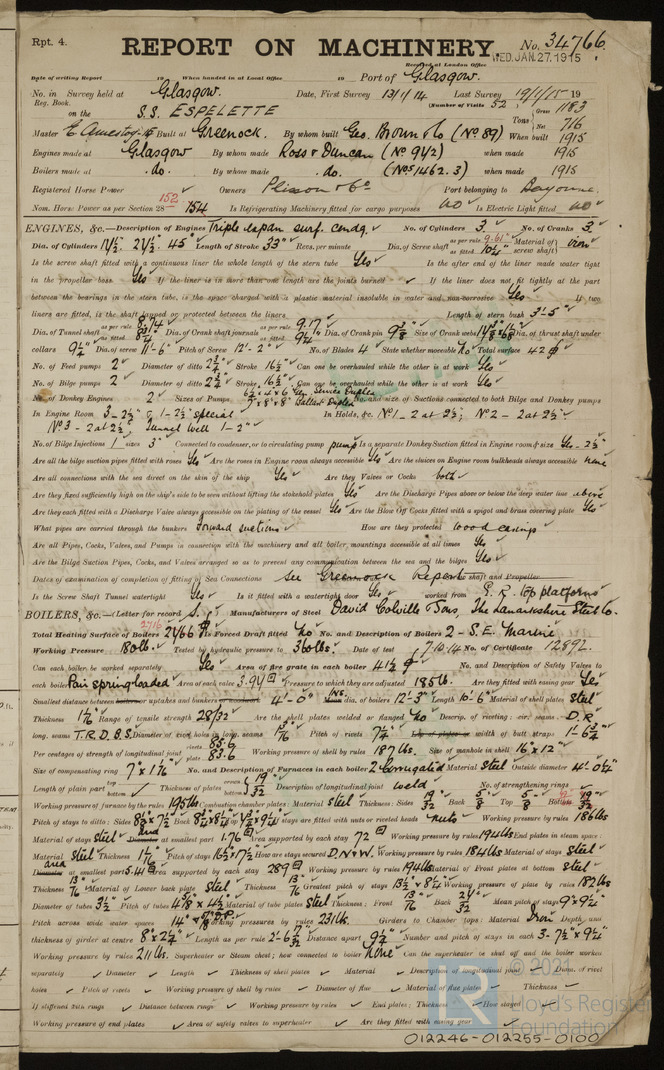 Rpt. 4.
REPORT ON MACHINERY.
No. 34766.
Received at London Office WED. JAN. 27. 1915
Date of writing Report 19 When handed in at Local Office 19 Port of Glasgow.
No. in Survey held at Glasgow. Date, First Survey 13/1/14 Last Survey 19/1/15 19
Reg. Book. (Number of Visits 52)
on the S.S. ESPELETTE Tons Gross 1183 Net 716
Master Built at Greenock. By whom built Geo. Brown & Co (No 89) When built 1915
Engines made at Glasgow By whom made Ross & Duncan (No 942) when made 1915
Boilers made at do. By whom made do. (Nos 1462.3) when made 1915
Registered Horse Power Owners Plisson & Co Port belonging to Bayonne.
Nom. Horse Power as per Section 28 152 154 Is Refrigerating Machinery fitted for cargo purposes no Is Electric Light fitted no
ENGINES, &c.—Description of Engines Triple expan surf. condg. No. of Cylinders 3 No. of Cranks 3
Dia. of Cylinders 45" Length of Stroke 33" Revs. per minute Dia. of Screw shaft as per rule 9.61" as fitted 10¼" Material of screw shaft iron
Is the screw shaft fitted with a continuous liner the whole length of the stern tube Yes Is the after end of the liner made water tight
in the propeller boss Yes If the liner is in more than one length are the joints burned If the liner does not fit tightly at the part
between the bearings in the stern tube, is the space charged with a plastic material insoluble in water and non-corrosive Yes If two
liners are fitted, is the shaft lapped or protected between the liners Length of stern bush 3'-5"
Dia. of Tunnel shaft as per rule as fitted Dia. of Crank shaft journals as per rule 9.17 as fitted 9¼" Dia. of Crank pin 9⅜ Size of Crank webs Dia. of thrust shaft under
collars 9¼" Dia. of screw 11'-6" Pitch of Screw 12'-2" No. of Blades 4 State whether moveable No Total surface 42
No. of Feed pumps 2 Diameter of ditto 2¾ Stroke 16½ Can one be overhauled while the other is at work Yes
No. of Bilge pumps 2 Diameter of ditto 2¾ Stroke 16½ Can one be overhauled while the other is at work Yes
No. of Donkey Engines 2 Sizes of Pumps Ballast Duplex No. and size of Suctions connected to both Bilge and Donkey pumps
In Engine Room 3-2½" & 1-2½" special In Holds, &c. No 1-2 at 2½; No 2-2 at 2½.
No 3-2 at 2½. Tunnel Well 1-2"
No. of Bilge Injections 1 sizes 3" Connected to condenser, or to circulating pump pump Is a separate Donkey Suction fitted in Engine room & size Yes-2½"
Are all the bilge suction pipes fitted with roses Yes Are the roses in Engine room always accessible Yes Are the sluices on Engine room bulkheads always accessible none
Are all connections with the sea direct on the skin of the ship Yes Are they Valves or Cocks both
Are they fixed sufficiently high on the ship's side to be seen without lifting the stokehold plates Yes Are the Discharge Pipes above or below the deep water line above
Are they each fitted with a Discharge Valve always accessible on the plating of the vessel Yes Are the Blow Off Cocks fitted with a spigot and brass covering plate Yes
What pipes are carried through the bunkers Forward suctions How are they protected wood casings
Are all Pipes, Cocks, Valves, and Pumps in connection with the machinery and all boiler mountings accessible at all times Yes
Are the Bilge Suction Pipes, Cocks, and Valves arranged so as to prevent any communication between the sea and the bilges Yes
Dates of examination of completion of fitting of Sea Connections See Greenock Report shaft and Propeller
Is the Screw Shaft Tunnel watertight Yes Is it fitted with a watertight door Yes worked from E.R. top platform
BOILERS, &c.—Letter for record S. Manufacturers of Steel David Colville & Sons, The Lanarkshire Steel Co.
Total Heating Surface of Boilers 2716 2166 Is Forced Draft fitted No No. and Description of Boilers 2-S.E. Marine
Working Pressure 180 lb. Tested by hydraulic pressure to 360 lbs. Date of test 7.10.14 No. of Certificate 12892.
Can each boiler be worked separately Yes Area of fire grate in each boiler 41½ No. and Description of Safety Valves to
each boiler Pair spring loaded Area of each valve 3.94 Pressure to which they are adjusted 185 lb. Are they fitted with easing gear Yes
Smallest distance between boilers or uptakes and bunkers or woodwork 4'-0" Ins. dia. of boilers 12'-3" Length 10'-6" Material of shell plates steel
Thickness 1 1/16 Range of tensile strength 28/32 Are the shell plates welded or flanged No Descrip. of riveting: cir. seams D.R
long. seams T.R.D.B.S. Diameter of rivet holes in long. seams Pitch of rivets 7¼ width of butt straps
Per centages of strength of longitudinal joint rivets 85.6 plate 83.6 Working pressure of shell by rules 187 lbs. Size of manhole in shell 16"×12"
Size of compensating ring 7"×1 1/16 No. and Description of Furnaces in each boiler 2 Corrugated Material steel Outside diameter 4'-0¼"
Length of plain part top bottom Thickness of plates crown bottom 19/32 Description of longitudinal joint weld No. of strengthening rings
Working pressure of furnace by the rules 195 lbs Combustion chamber plates: Material steel Thickness: Sides 19/32 Back 5/8 Top 5/8 Bottom 19/32
Pitch of stays to ditto: Sides 8½×7½ Back Top If stays are fitted with nuts or riveted heads nuts Working pressure by rules 186 lbs
Material of stays steel area at smallest part 1.76 Area supported by each stay 72 Working pressure by rules 194 lbs End plates in steam space:
Material steel Thickness 1 1/16 Pitch of stays 16½×17½ How are stays secured D.N&W. Working pressure by rules 184 lbs Material of stays steel
area at smallest part 5.41 Area supported by each stay 289 Working pressure by rules 194 lbs Material of Front plates at bottom steel
Thickness 13/16 Material of Lower back plate steel Thickness 13/16 Greatest pitch of stays Working pressure of plate by rules 182 lbs
Diameter of tubes 3½" Pitch of tubes Material of tube plates steel Thickness: Front 13/16 Back Mean pitch of stays
Pitch across wide water spaces 14" Working pressures by rules 231 lbs. Girders to Chamber tops: Material Iron Depth and
thickness of girder at centre Length as per rule Distance apart 9¼" Number and pitch of stays in each 3-7½"×9¼"
Working pressure by rules 211 lbs. Superheater or Steam chest; how connected to boiler None Can the superheater be shut off and the boiler worked
separately Diameter Length Thickness of shell plates Material Description of longitudinal joint Diam. of rivet
holes Pitch of rivets Working pressure of shell by rules Diameter of flue Material of flue plates Thickness
If stiffened with rings Distance between rings Working pressure by rules End plates: Thickness How stayed
Working pressure of end plates Area of safety valves to superheater Are they fitted with easing gear
© 2021
Lloyd's Register
Foundation
012246-012255-0100